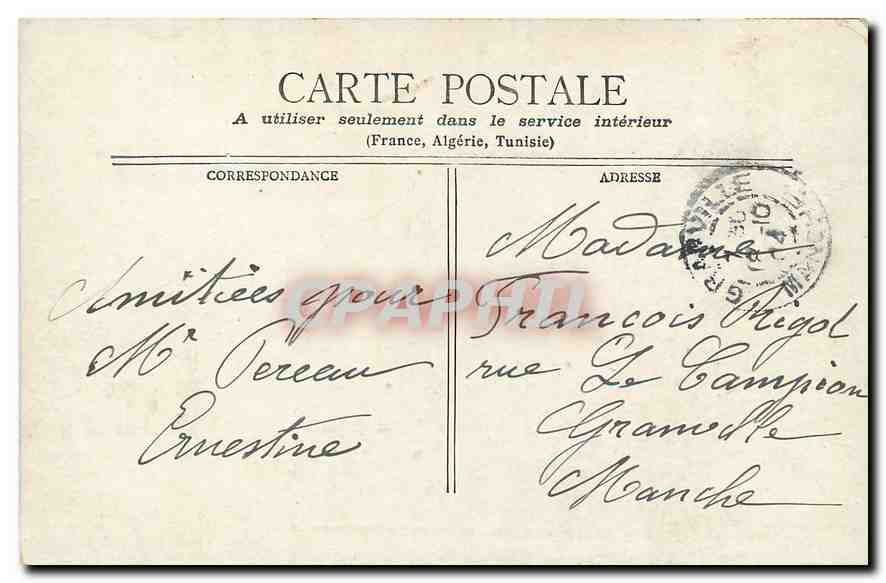 CARTE POSTALE
A utiliser seulement dans le service intérieur
(France, Algérie, Tunisie)
CORRESPONDANCE
ADRESSE
Amitiées pour
Mr Pereau
Ernestine
Madame
Francois Rigol
rue Le Campion
Granville
Manche
GRANVILLE
MANCHE
CPAPHIL